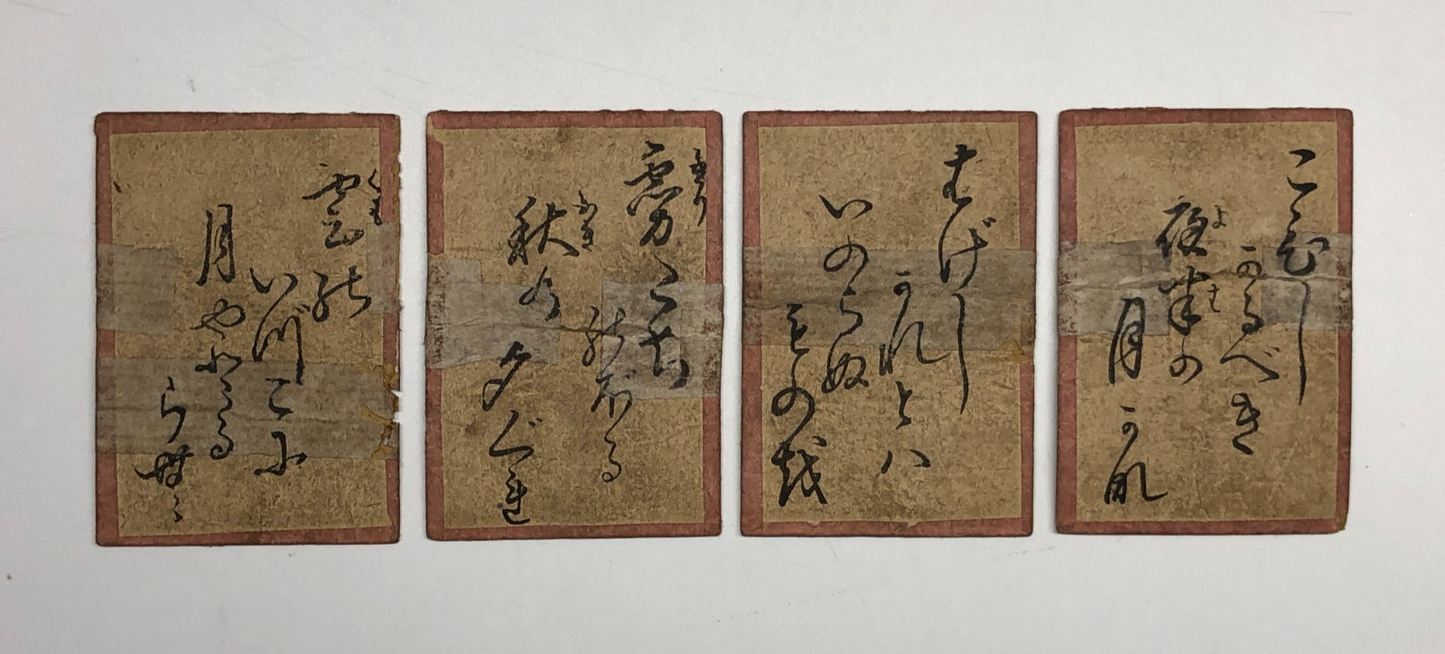 こひし
かるべき
夜半の
よは
月かな
はげし
かれとは
いのらぬ
ものを
霧たち
きり
のぼる
秋の
あき
夕ぐれ
雲の
くも
いづこに
月やどる
らむ